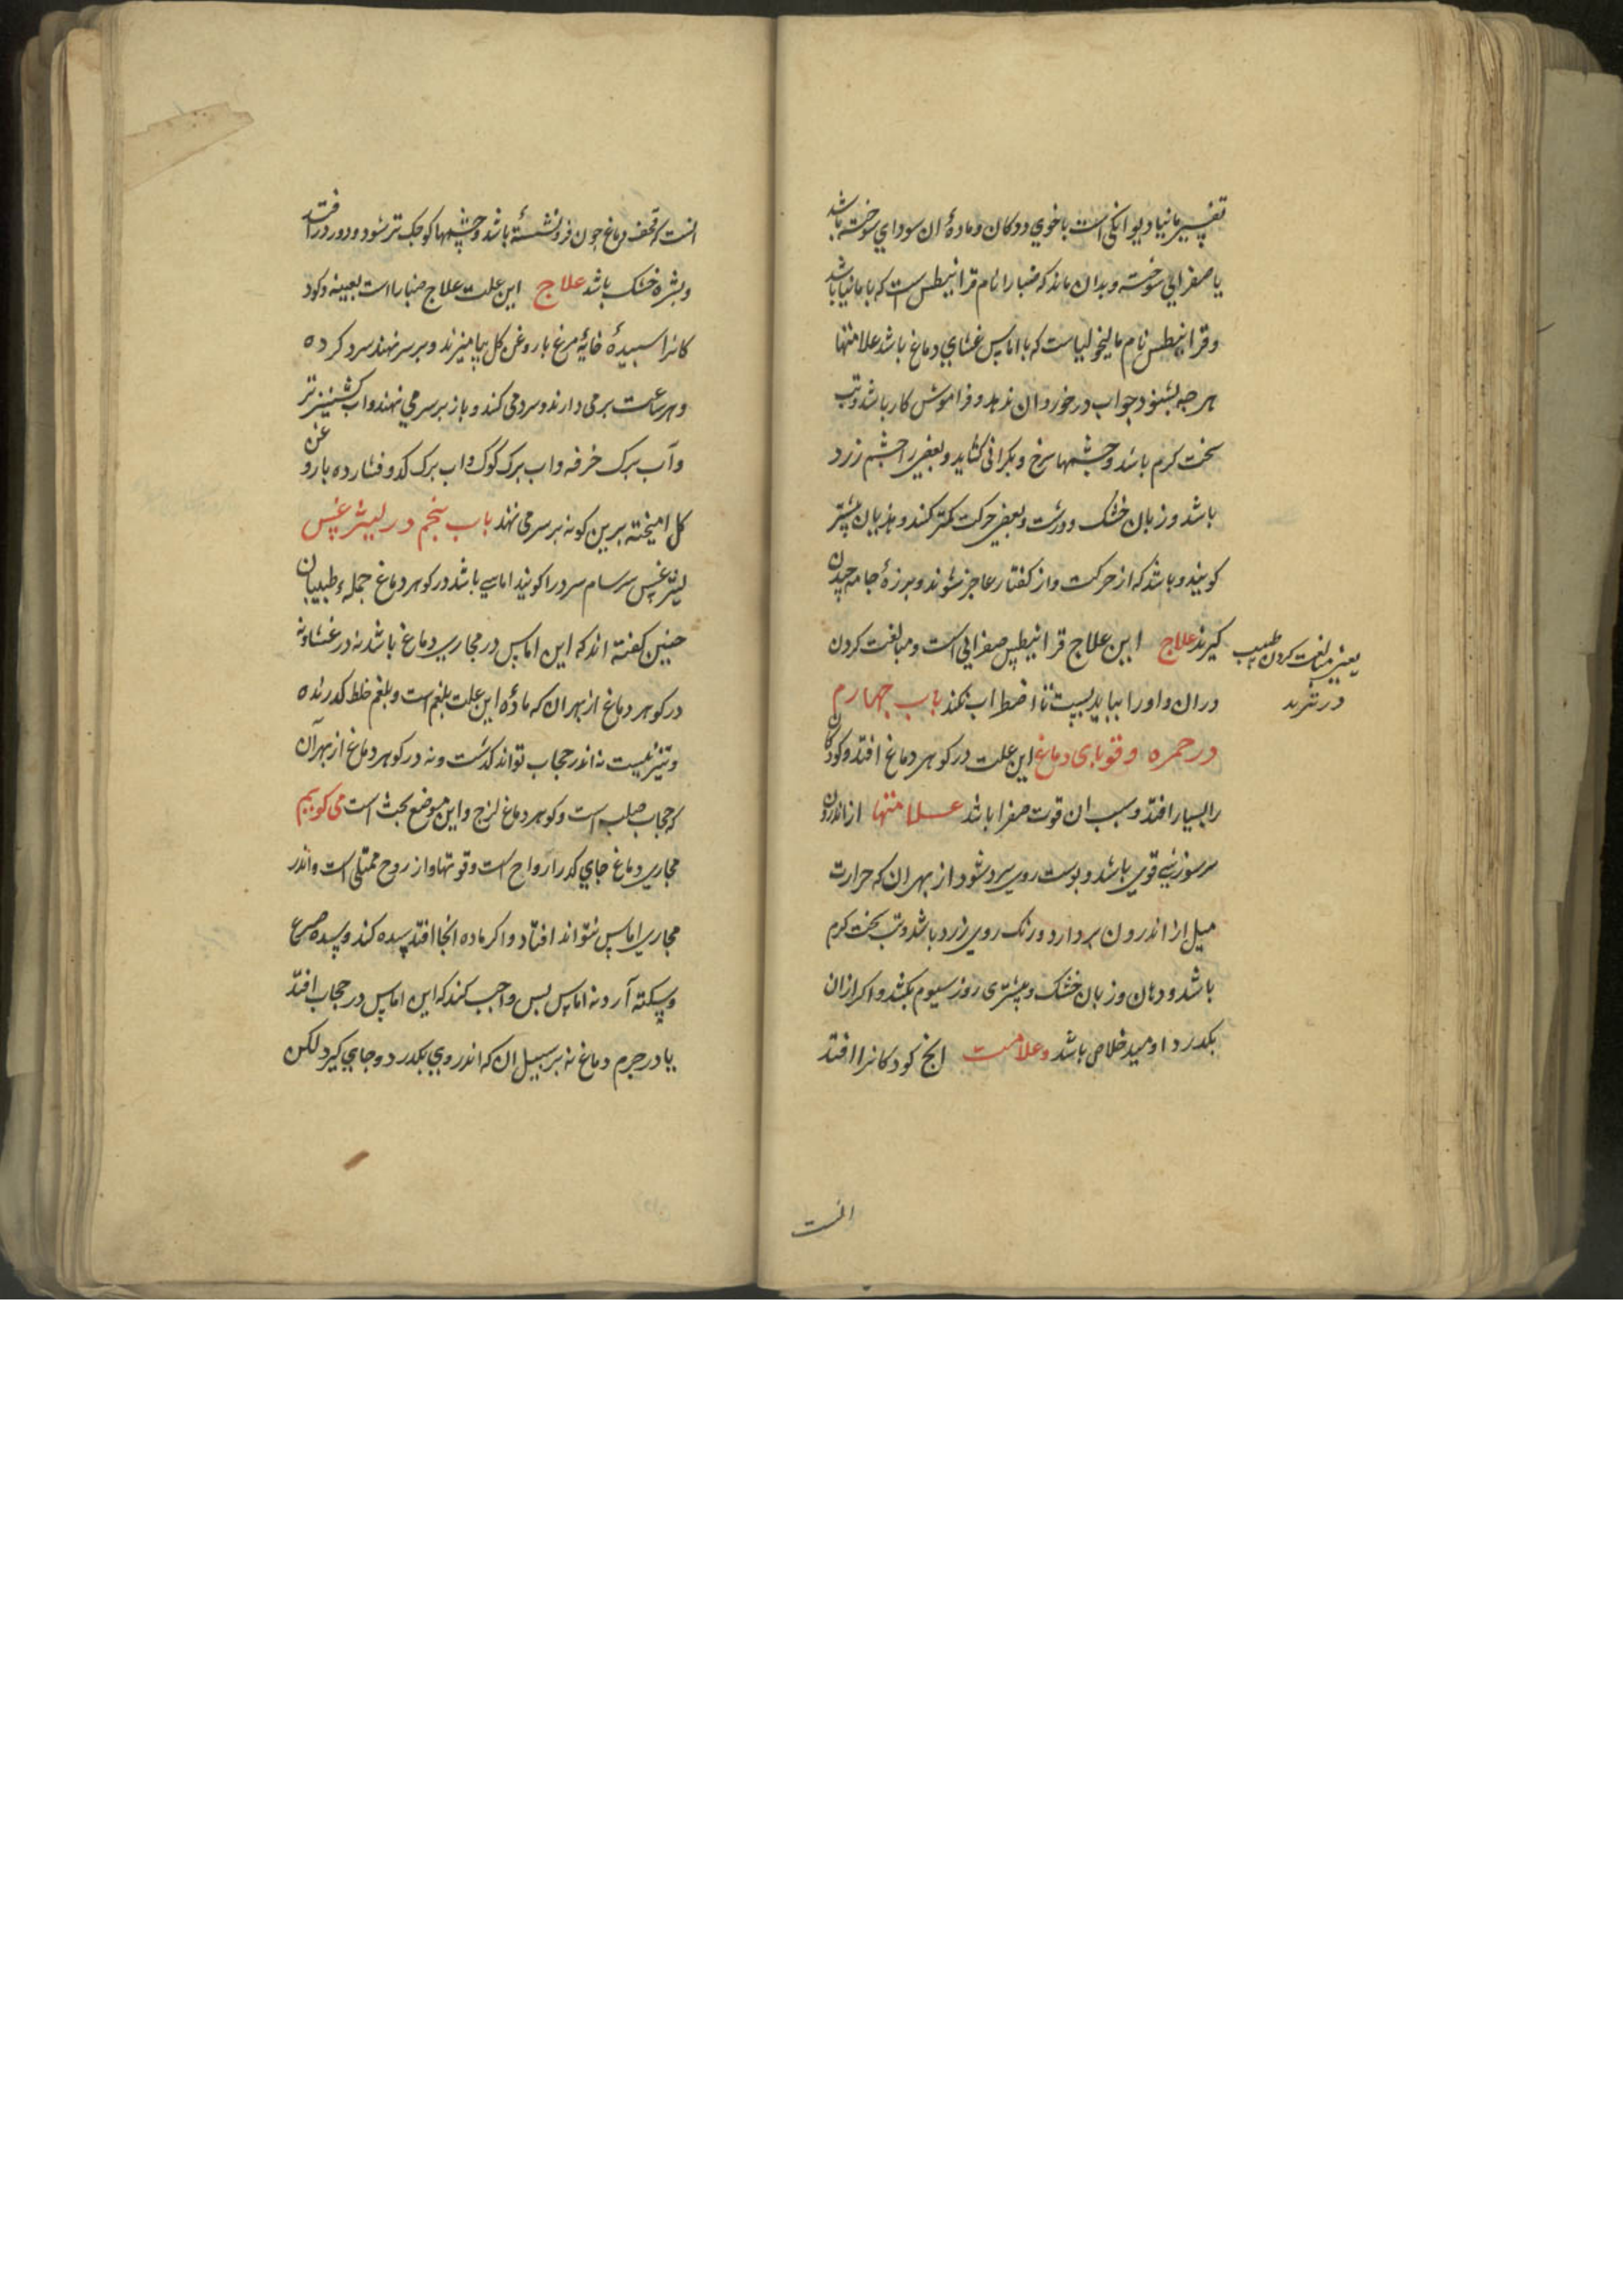 تفسیر مانیا دیوانکی است باخوی ددکان و مادهٔ ان سودای سوخته باشد
یا صفرایی سوخته و بدان ماند که ضبارا نام قرانیطس است که با مانیا باشد
و قرانیطس نام مالیخولیاست که با اماس غشای دماغ باشد علامتها
هر جه بشنود جواب درخور ان ندهد و فراموش کار باشد و تب
سخت کرم باشد و جشمها سرخ و بکرانی کشاید و بعضی را جشم زرد
باشد و زبان خشک و درشت و بعضی حرکت کمتر کنند و هذیان بیشتر
کویند و باشد که از حرکت و از کفتار عاجز شوند و برزهٔ جامه جیدن
کیرند علاج این علاج قرانیطس صفرایی است و مبالغت کردن
یعنی مبالغت کردن طبیب
در تبرید
دران و اورا بباید بست تا اضطراب نکند باب جهارم
در حمره و قوبای دماغ این علت در کوهر دماغ افتد و کودکان
را بسیار افتد و سبب ان قوت صفرا باشد علامتها از اندرون
سر سوزشی قوی باشد و بوست روی سرد شود از بهر ان که حرارت
میل از اندرون بر دارد و رنک روی زرد باشد و تب سخت کرم
باشد و دهان و زبان خشک و بیشتری روز سیوم بکشد و اکر ازان
بکدرد اومید خلاص باشد و علامت انج کودکانرا افتد
انست
انست که قحف دماغ جون فرو نشسته باشد و جشمها کوجک تر شود و دور در افتد
و بشره خشک باشد علاج این علت علاج ضبارا است بعینه و کود
کانرا اسبیدهٔ خایهٔ مرغ با روغن کل بیامیزند و بر سر نهند سرد کرده
و هر ساعت بر می دارند و سرد می کنند و باز بر سر می نهند و اب کشنیز تر
و آب برک خرفه و اب برک کوک و اب برک کدو فشارده با روغن
کل امیخته برین کونه بر سر می نهند باب بنجم در لیثرغس
لیثرغس سرسام سرد را کویند اماسی باشد در کوهر دماغ جملهء طبیبان
جنین کفته اند که این اماس در مجاری دماغ باشد نه در غشا و نه
در کوهر دماغ از بهر ان که مادهٔ این علت بلغم است و بلغم خلط کدرنده
و تیز نیست نه اندر حجاب تواند کدشت و نه در کوهر دماغ از بهر آن
که حجاب صلب است و کوهر دماغ لزج و این موضع بحث است می کوییم
مجاری دماغ جای کدر ارواح است و قوتها و از روح ممتلی است و اندر
مجاری اماس نتواند افتاد و اکر ماده انجا افتد سده کند و سده صرع
و سکته آرد نه اماس بس واجب کند که این اماس در حجاب افتد
یا در جرم دماغ نه بر سبیل ان که اندر وی بکدرد و جای کیرد لکن